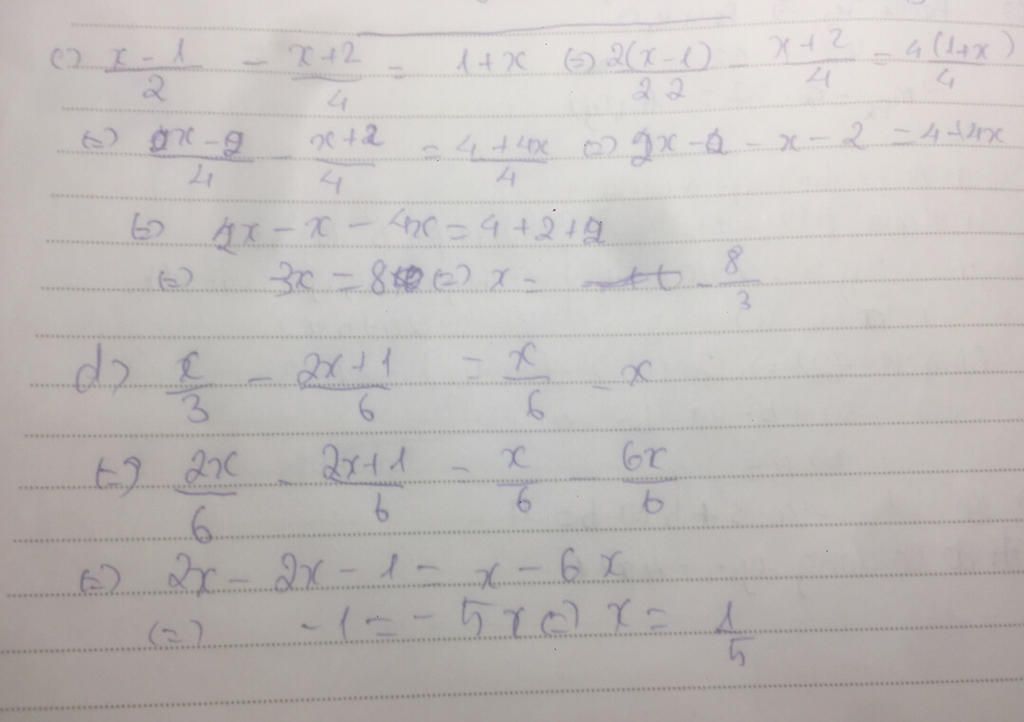 c) \frac{x-1}{2} - \frac{x+2}{4} = 1+x (=) \frac{2(x-1)}{2 2} - \frac{x+2}{4} = \frac{4(1+x)}{4}
(=) \frac{2x-2}{4} - \frac{x+2}{4} = \frac{4+4x}{4} (=) 2x-2-x-2 = 4+4x
(=) 2x-x-4x = 4+2+2
(=) 3x = 8 (=) x = -\frac{8}{3}
d) \frac{x}{3} - \frac{2x+1}{6} = \frac{x}{6} - x
(=) \frac{2x}{6} - \frac{2x+1}{6} = \frac{x}{6} - \frac{6x}{6}
(=) 2x-2x-1 = x-6x
(=) -1 = -5x (=) x = \frac{1}{5}